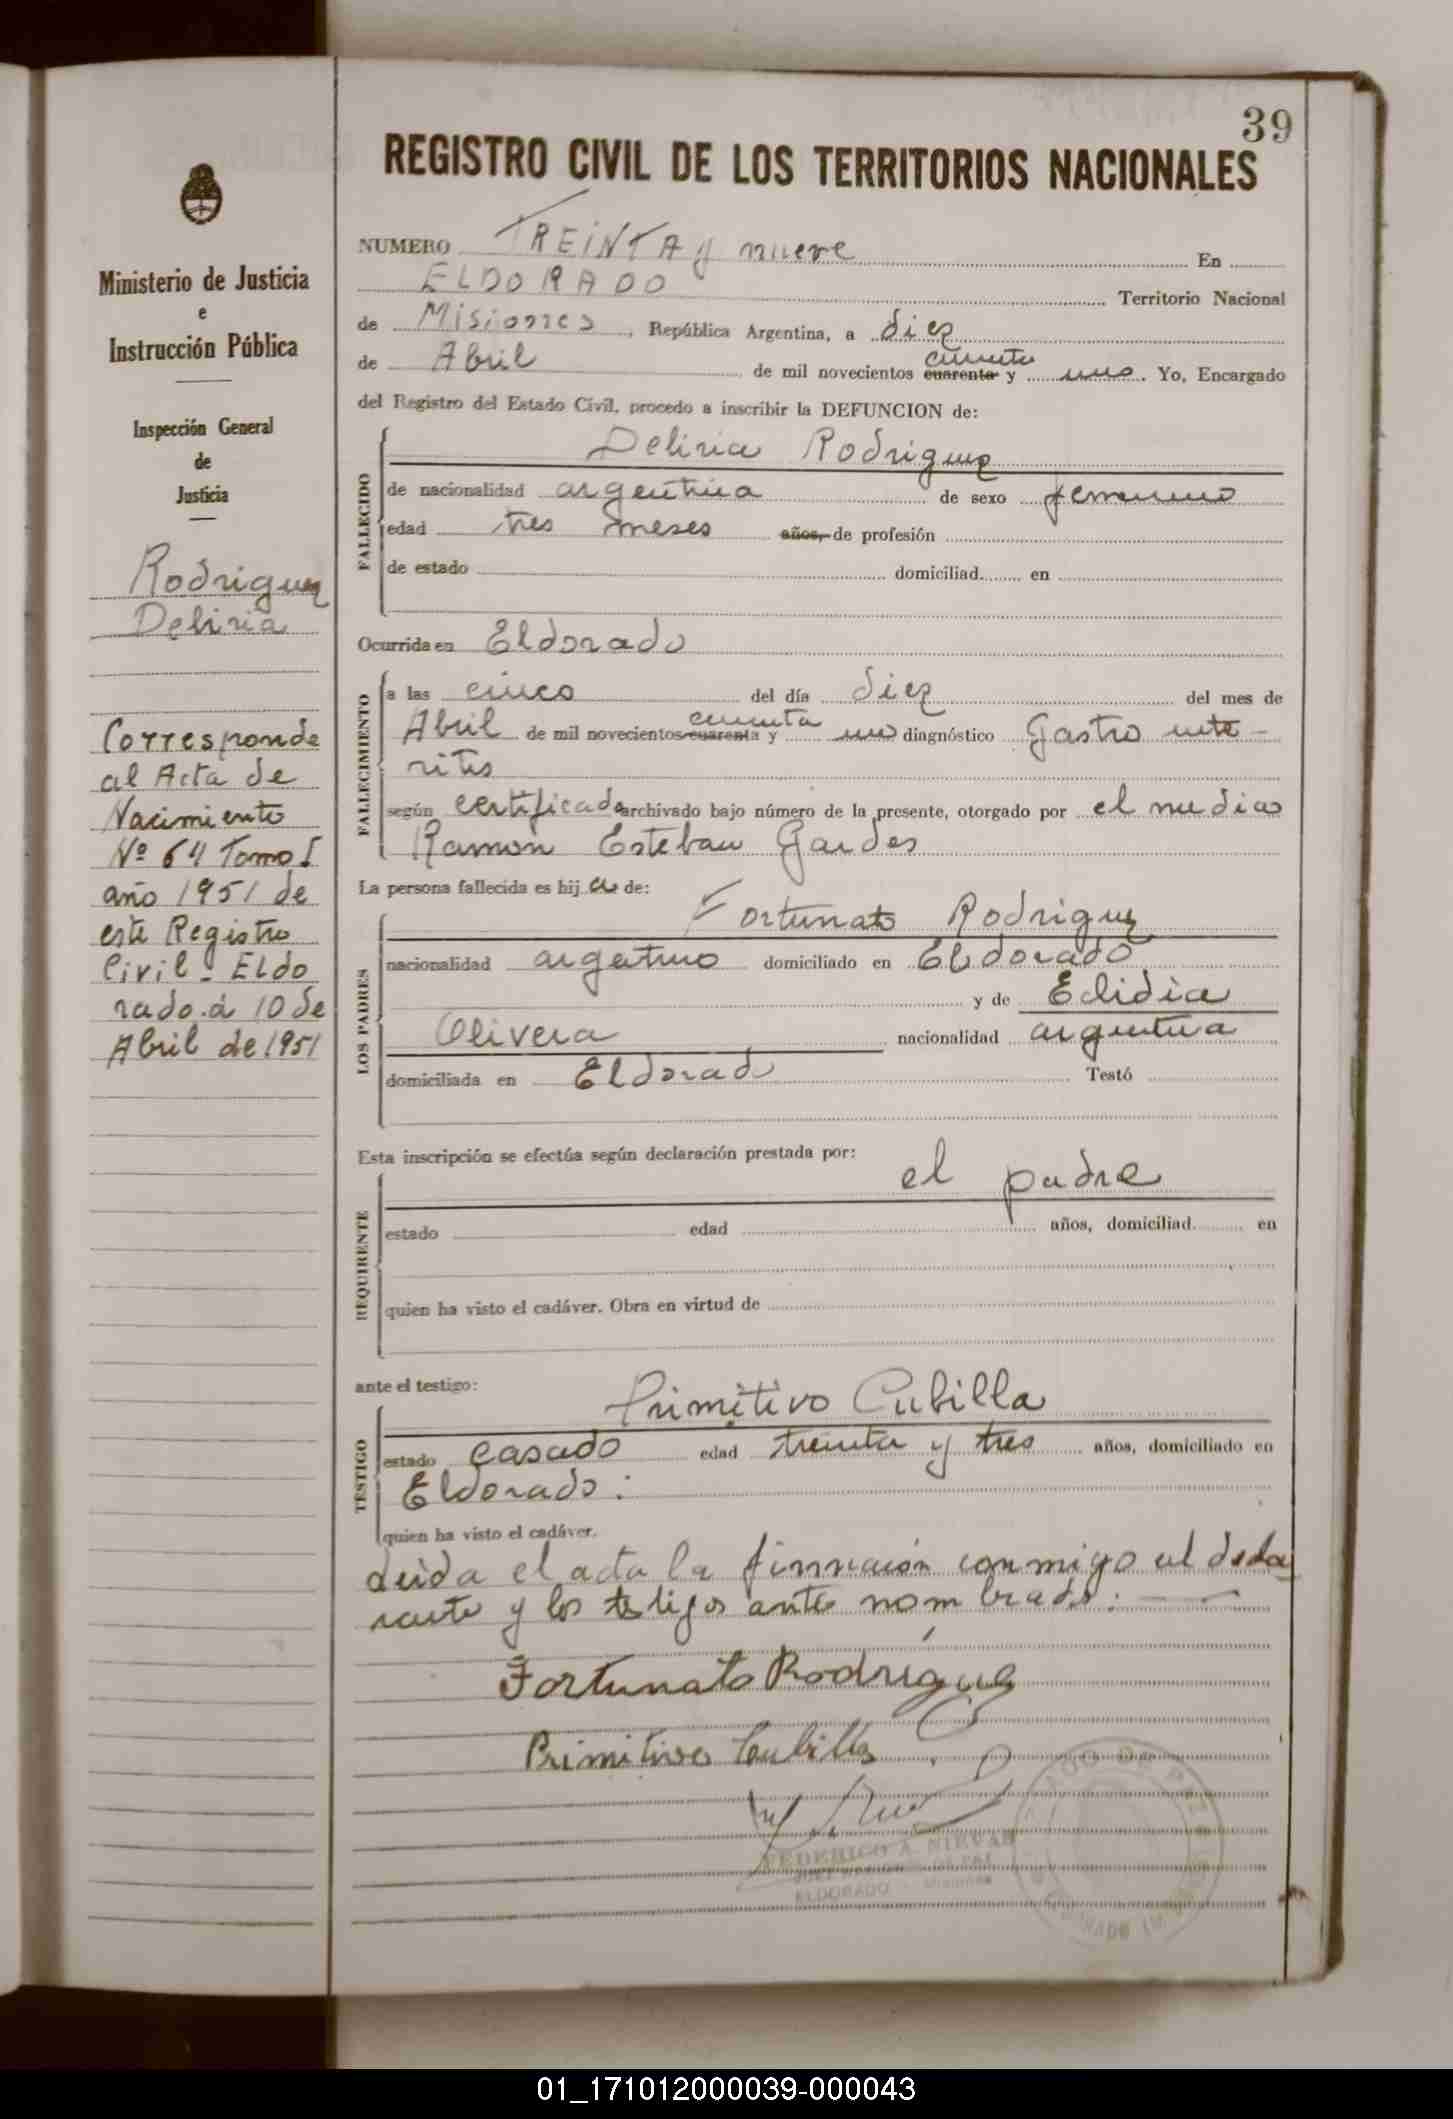 39
REGISTRO CIVIL DE LOS TERRITORIOS NACIONALES
NUMERO TREINTA y nueve En
ELDORADO Territorio Nacional
de Misiones, República Argentina, a diez
de Abril de mil novecientos cuarenta cincuenta y uno. Yo, Encargado
del Registro del Estado Civil, procedo a inscribir la DEFUNCION de:
FALLECIDO
Deliria Rodriguez
de nacionalidad argentina de sexo femenino
edad tres meses años, de profesión
de estado domiciliad en
Ocurrida en Eldorado
FALLECIMIENTO
a las cinco del día diez del mes de
Abril de mil novecientos cuarenta cincuenta y uno diagnóstico Gastro ente-
ritis
según certificado archivado bajo número de la presente, otorgado por el medico
Ramon Esteban Gardes
La persona fallecida es hija de:
LOS PADRES
Fortunato Rodriguez
nacionalidad argentino domiciliado en Eldorado
y de Elidia
Olivera nacionalidad argentina
domiciliada en Eldorado Testó
Esta inscripción se efectúa según declaración prestada por:
REQUIRENTE
el padre
estado edad años, domiciliad en
quien ha visto el cadáver. Obra en virtud de
ante el testigo:
TESTIGO
Primitivo Cubilla
estado casado edad treinta y tres años, domiciliado en
Eldorado:
quien ha visto el cadáver.
Leida el acta la firmaron conmigo el decla
rante y los testigos ante nombrado:
Fortunato Rodriguez
Primitivo Cubilla
FEDERICO A. NIEVAS
JUEZ DE PAZ
ELDORADO - Misiones
JUZGADO DE PAZ
ELDORADO
Ministerio de Justicia
e
Instrucción Pública
Inspección General
de
Justicia
Rodriguez
Deliria
Corresponde
al Acta de
Nacimiento
Nº 64 Tomo I
año 1951 de
este Registro
Civil - Eldo
rado a 10 de
Abril de 1951
01_171012000039-000043